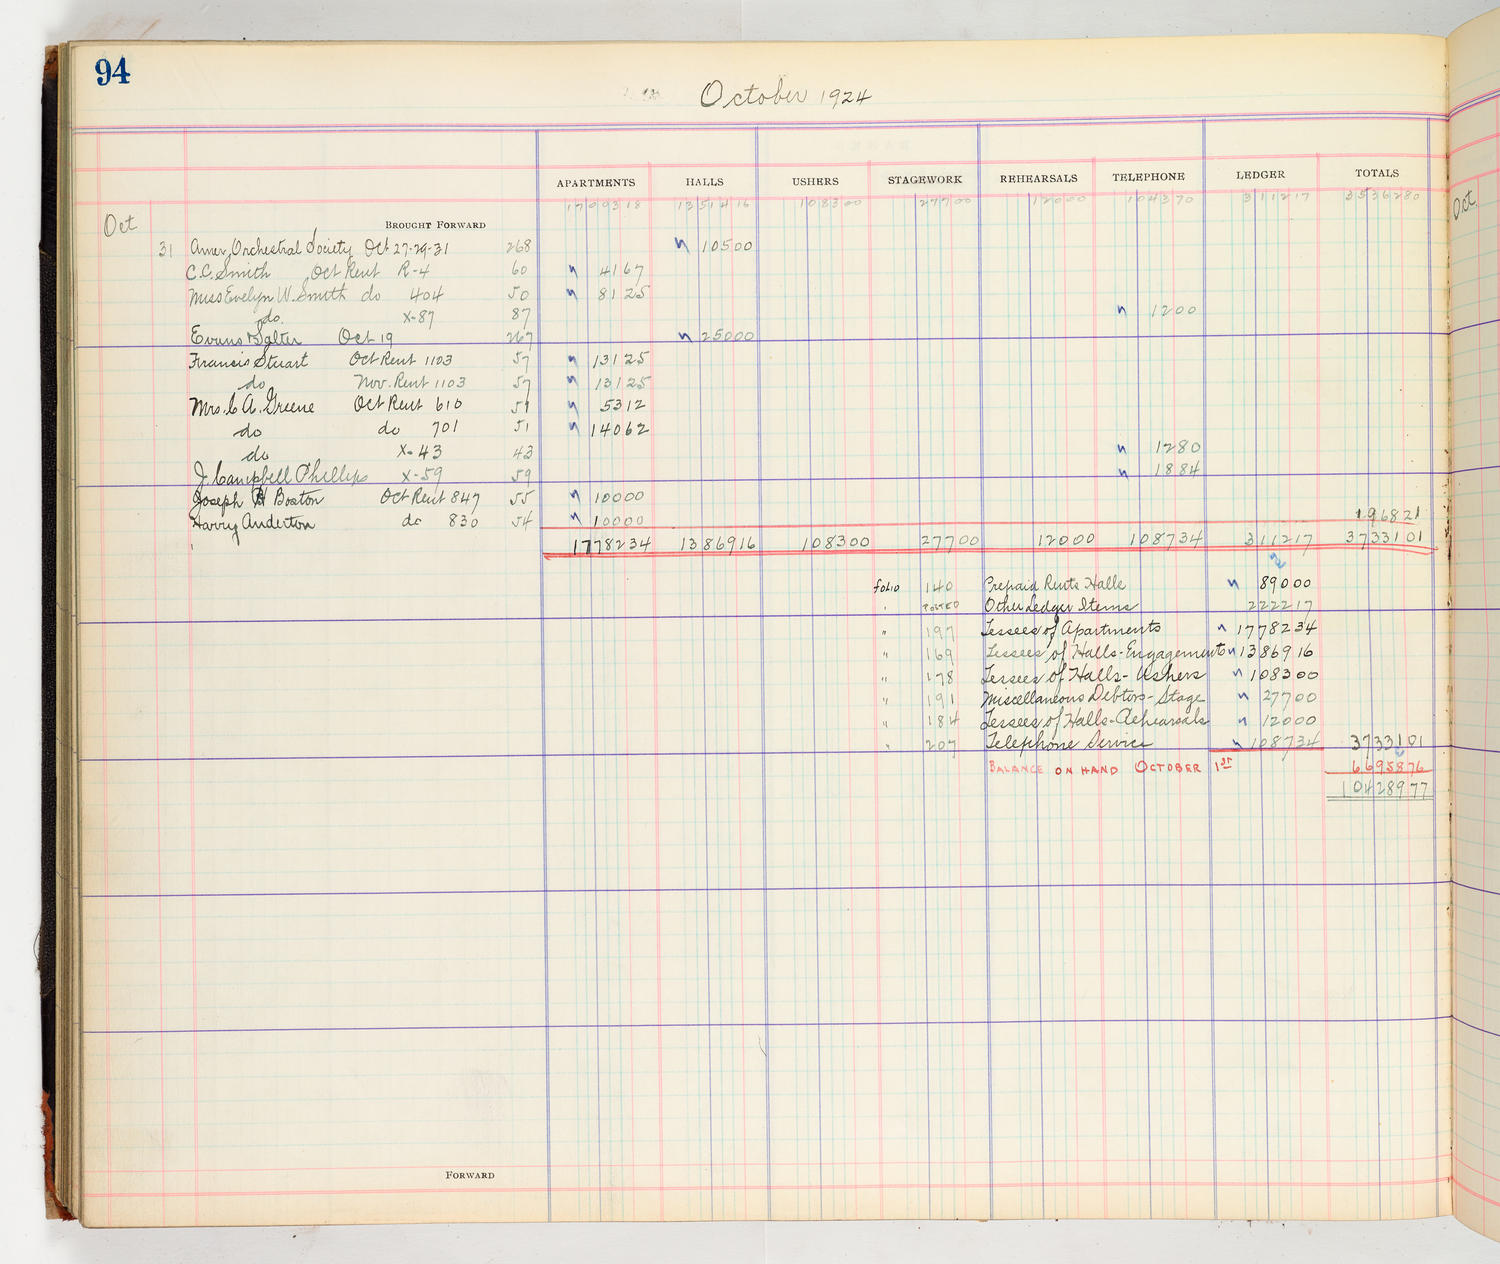 94
October 1924
APARTMENTS HALLS USHERS STAGEWORK REHEARSALS TELEPHONE LEDGER TOTALS
Oct BROUGHT FORWARD 1709318 1351416 108300 27700 12000 104370 311217 3536280
31 Amer. Orchestral Society Oct 27-29-31 268 10500
C.C. Smith Oct Rent R-4 60 4167
Miss Evelyn W. Smith do 404 50 8125
do. X-87 87 1200
Evans & Salter Oct 19 267 25000
Francis Stuart Oct Rent 1103 57 13125
do Nov. Rent 1103 57 13125
Mrs. C A. Greene Oct Rent 610 51 5312
do do 701 51 14062
do X-43 43 1280
J. Campbell Phillips X-59 59 1884
Joseph H Boston Oct Rent 847 55 10000
Harry Anderton do 830 54 10000 196821
1778234 1386916 108300 27700 12000 108734 311217 3733101
folio 140 Prepaid Rents Halls 89000
" POSTED Other Ledger Items 222217
" 197 Lessees of Apartments 1778234
" 169 Lessees of Halls-Engagements 1386916
" 178 Lessees of Halls-Ushers 108300
" 191 Miscellaneous Debtors-Stage 27700
" 184 Lessees of Halls-Rehearsals 12000
" 207 Telephone Service 108734 3733101
BALANCE ON HAND OCTOBER 1ST 6695876
10428977
FORWARD
Oct